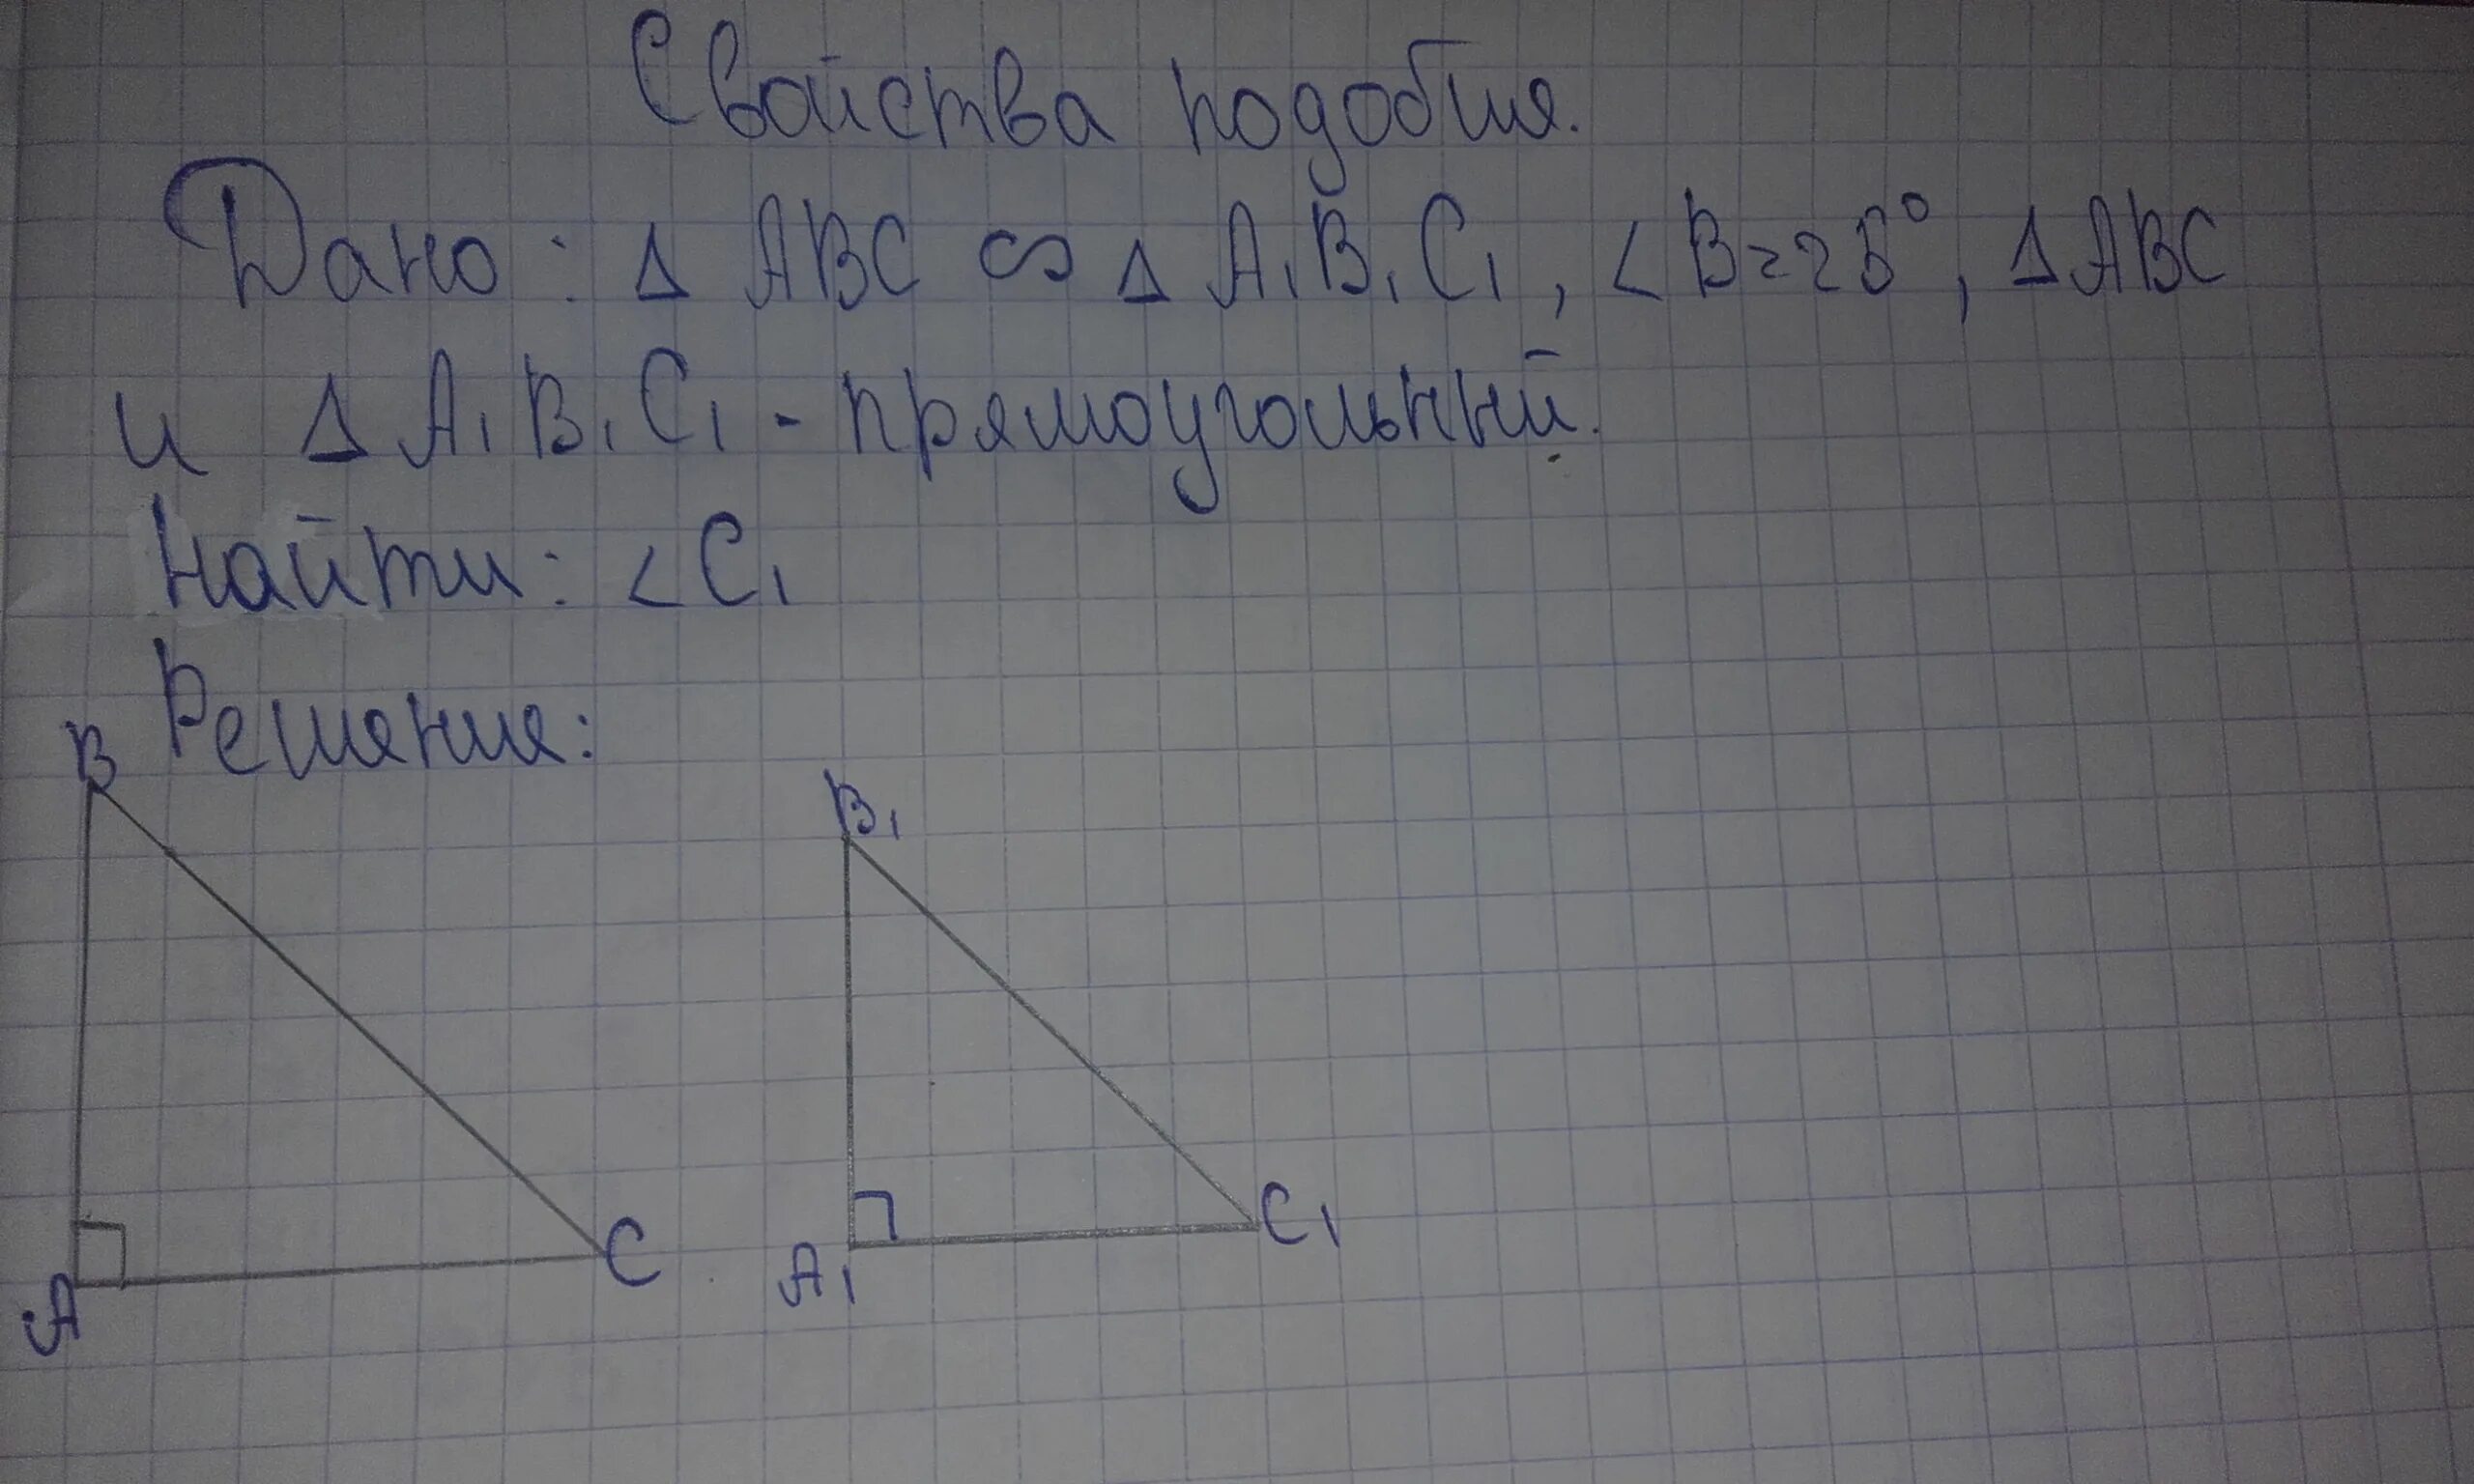 Свойства подобия.
Дано: Δ ABC ∞ Δ A₁B₁C₁, ∠B=25°, Δ ABC
и Δ A₁B₁C₁ - прямоугольный.
Найти: ∠C₁
Решение:
B
B₁
A
C
A₁
C₁